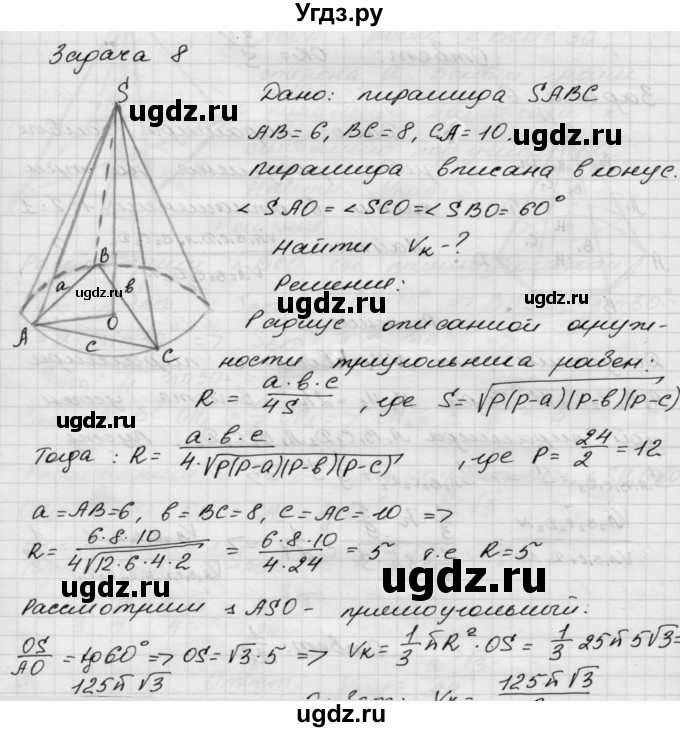 Угдз.ру
Задача 8
S
Дано: пирамида SABC
ugdz.ru
AB = 6, BC = 8, CA = 10.
ugdz.ru
пирамида вписана в конус.
∠SAO = ∠SCO = ∠SBO = 60°
Найти Vк - ?
B
a
ugdz.ru
в
Решение:
ugdz.ru
O
A
c
C
Радиус описанной окруж-
ности треугольника равен:
R = a·в·c / 4S , где S = √P(P-a)(P-в)(P-c)
ugdz.ru
ugdz.ru
Тогда: R = a·в·c / 4·√P(P-a)(P-в)(P-c) , где P = 24/2 = 12
a = AB = 6, в = BC = 8, c = AC = 10 =>
R = 6·8·10 / 4√12·6·4·2 = 6·8·10 / 4·24 = 5 т.е R = 5
ugdz.ru
ugdz.ru
Рассмотрим ▵ASO - прямоугольный:
OS/AO = tg60° => OS = √3·5 => Vк = 1/3 πR²·OS = 1/3 25π 5√3 =
125π√3
Vк = 125π√3
ugdz.ru
ugdz.ru